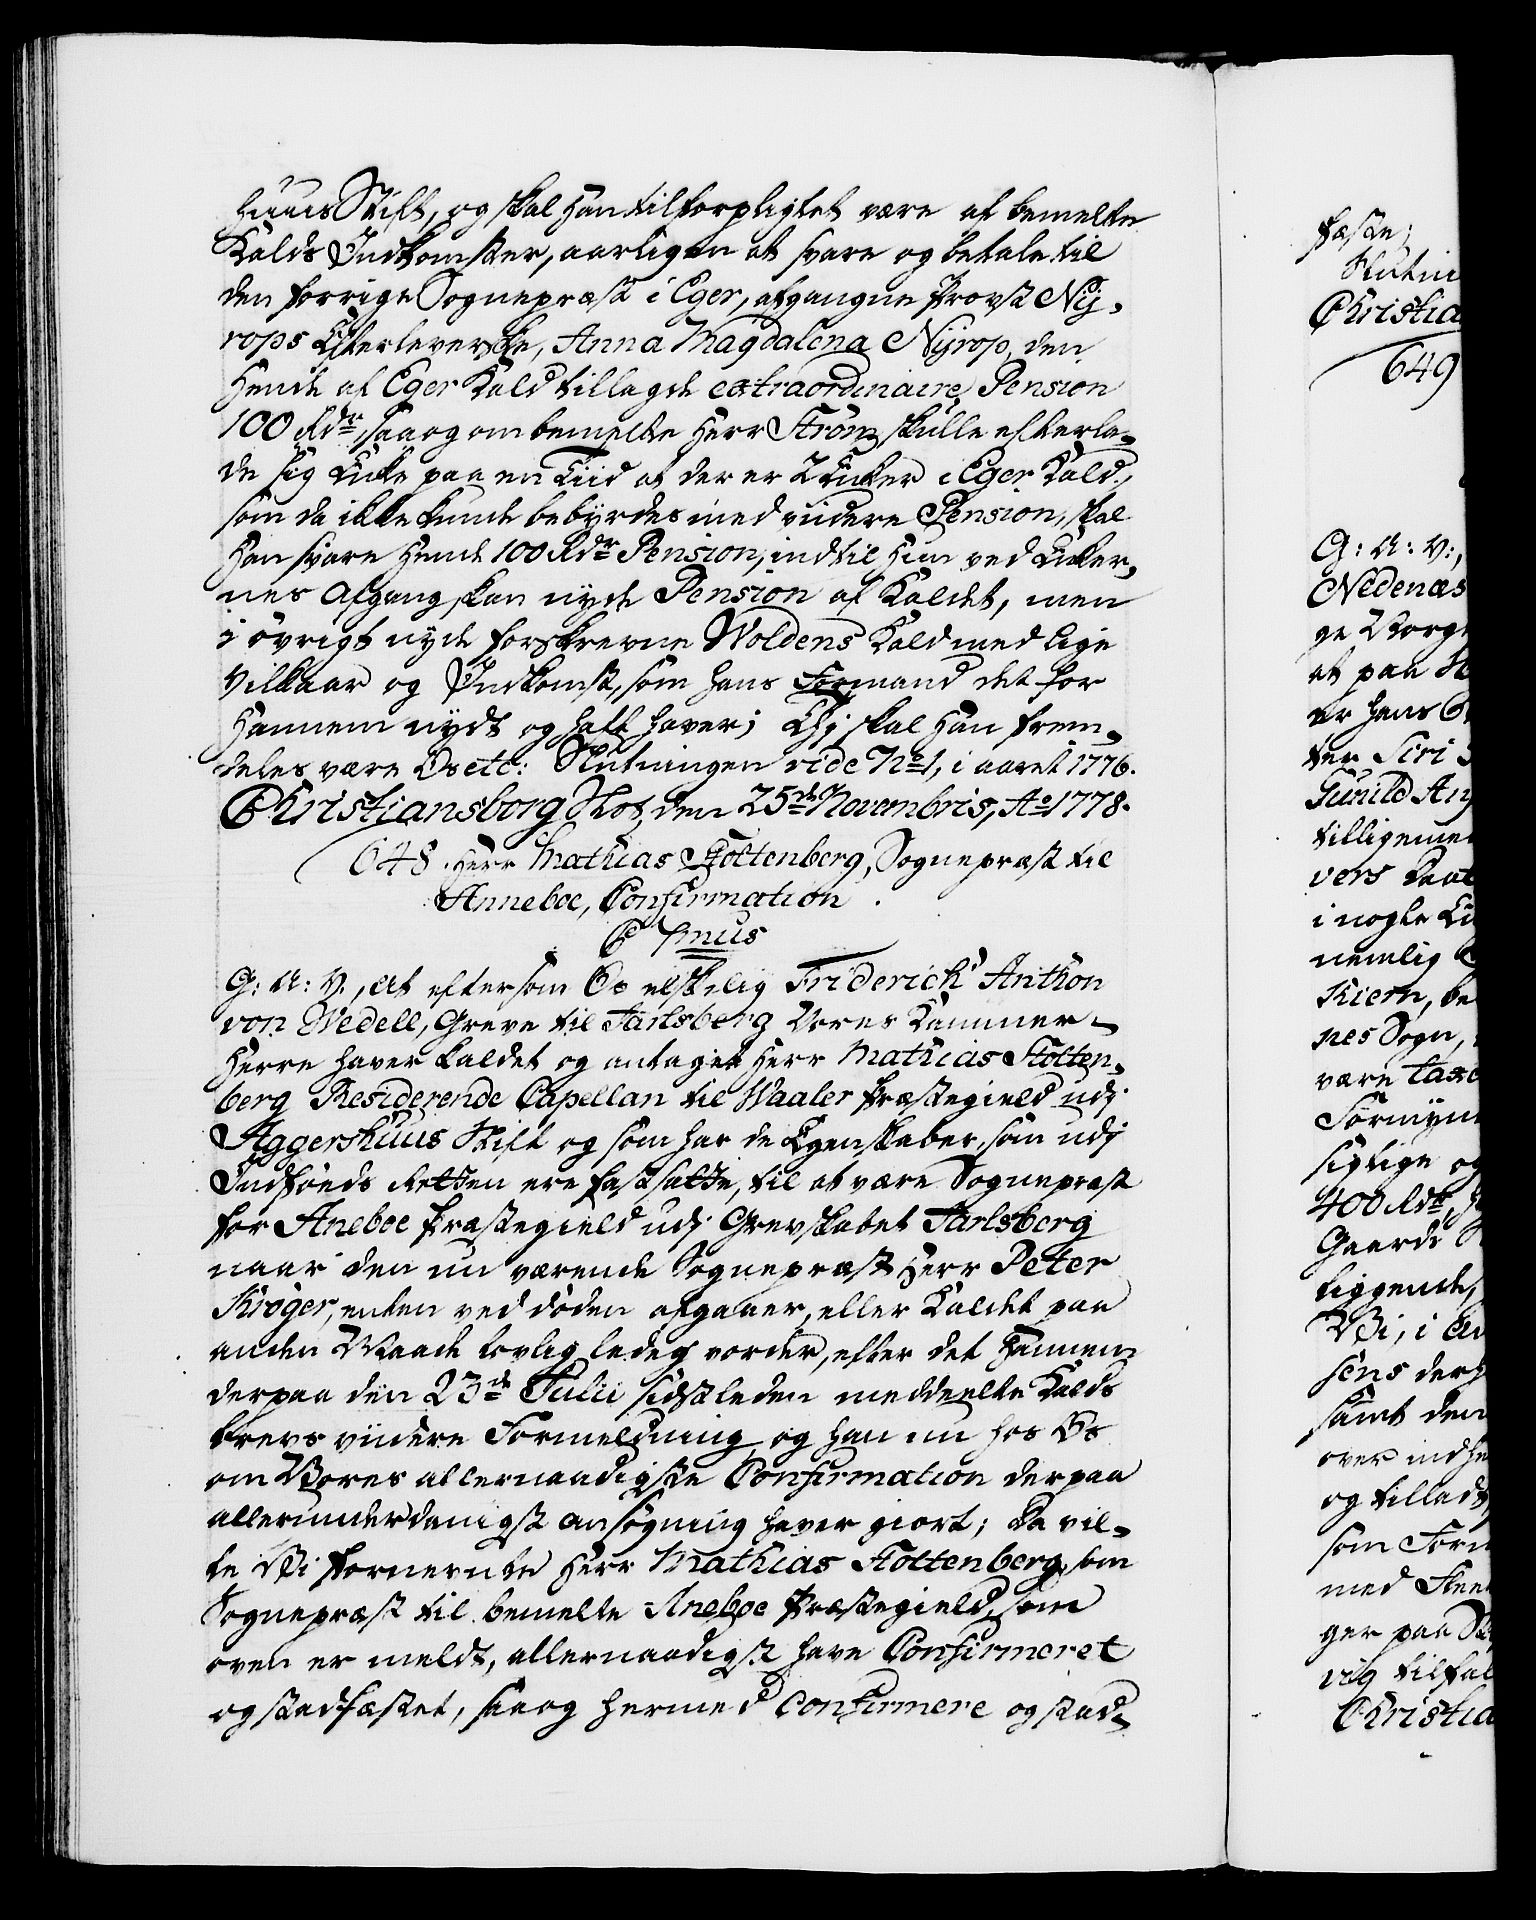 huus Stift, og skal Han tilforpligtet være af bemelte
Kalds Indkomster, aarligen at svare og betale til
den forrige Sognepræst i Eger, afgangne Provst Nÿ-
rops Efterleverske, Anna Magdalena Nÿrop, den
Hende af Eger Kald tillagde extraordinaire Pension
100 Rdr, saa og om bemelte Herr Strøm skulle efterla-
de sig Enke paa en Tiid at der er 2 Enker i Eger Kald,
som da ikke kunde bebyrdes med videre Pension, skal
Han svare Hende 100 Rdr Pension, indtil Hun ved Enker-
nes Afgang kan nyde Pension af Kaldet, men
i øvrigt nyde forskrevne Woldens Kald med lige
Vilkaar og Indkomst, som hans Formand det for
Hannem nydt og haft haver; Thj skal Han frem-
deles være Os etc: Slutningen vide No 1, i aaret 1776.
Christiansborg Slot, den 25de Novembris, Ao 1778.
648. Herr Mathias Stoltenberg, Sognepræst til
Anneboe, Confirmation.
C 7mus
G: A: V., at eftersom Os elskelig Friderich Anthon
von Wedell, Greve til Jarlsberg Vores Kammer-
Herre haver kaldet og antaget Herr Mathias Stolten-
berg Residerende Capellan til Waaler Præstegield udj
Aggershuus Stift og som har de Egenskaber, som udj
Indføds Retten ere fastsatte, til at være Sognepræst
for Aneboe Præstegield udj Grevskabet Jarlsberg
naar den nu værende Sognepræst Herr Peter
Krøger, enten ved døden afgaaer, eller Kaldet paa
anden Maade lovlig ledig vorder, efter det Hannem
derpaa den 23de Julii sidstleden meddeelte Kalds
brevs videre Formeldning, og han nu hos Os
om Vores allernaadigste Confirmation derpaa
allerunderdanigst ansøgning haver giort; Da vil-
le Vi fornevnte Herr Mathias Stoltenberg, som
Sognepræst til bemelte Aneboe Præstegield, som
oven er meldt, allernaadigst have Confirmeret
og stadfæstet, saa og hermed Confirmere og stad-
fæste;
Slutni
Christia
649
G: A: V:,
Nedenæs
ge Vorge
at paa
er hans
ter Siri
Gunild An
tilligeme
vers
i nogle
nemlig
Kiern, be
nes Sogn,
være taxe
Formyn
sigtige og
400 Rdr,
Gaarde
liggende,
Vi, i
sens der
samt den
over indhe
og tillade
som Form
med
ger paa
vig tilfal
Christia